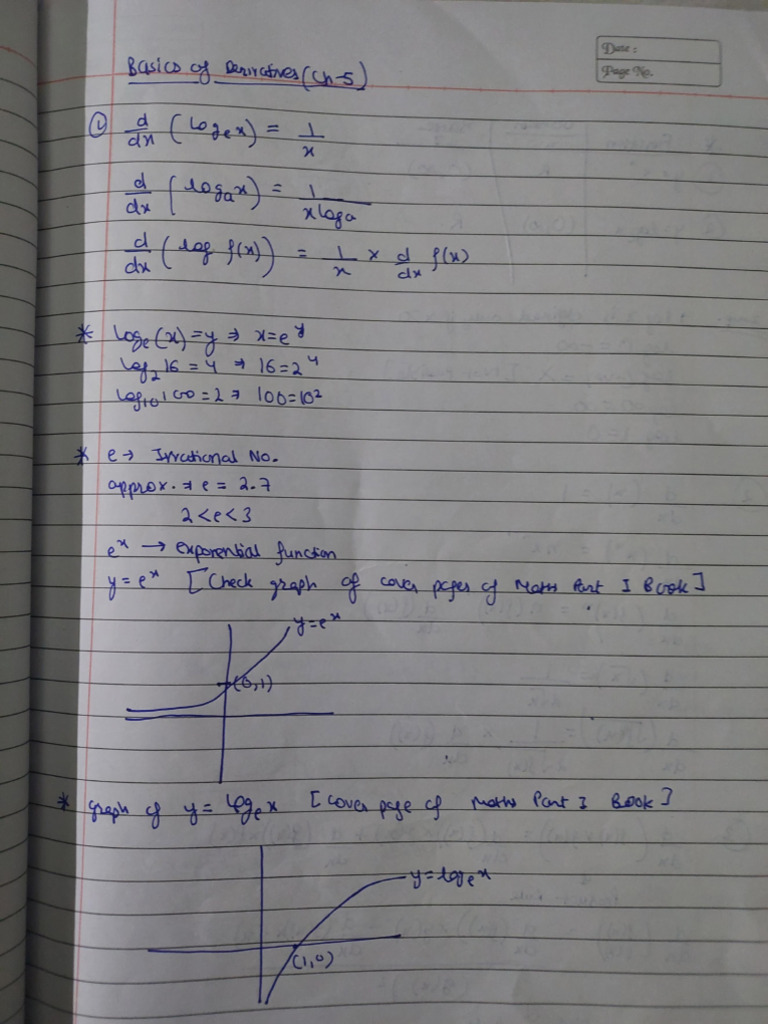 Date :
Page No.
Basics of Derivatives (Ch-5)
① d/dx (log_e x) = 1/x
d/dx (log_a x) = 1/(x log a)
d/dx (log f(x)) = 1/x × d/dx f(x)
* log_e(x) = y ⇒ x = e^y
log_2 16 = 4 ⇒ 16 = 2^4
log_10 100 = 2 ⇒ 100 = 10^2
* e → Irrational No.
approx. ⇒ e = 2.7
2 < e < 3
e^x → exponential function
y = e^x [Check graph of cover pages of Maths Part I Book]
y = e^x
(0,1)
* graph of y = log_e x [Cover page of Maths Part I Book]
y = log_e x
(1,0)